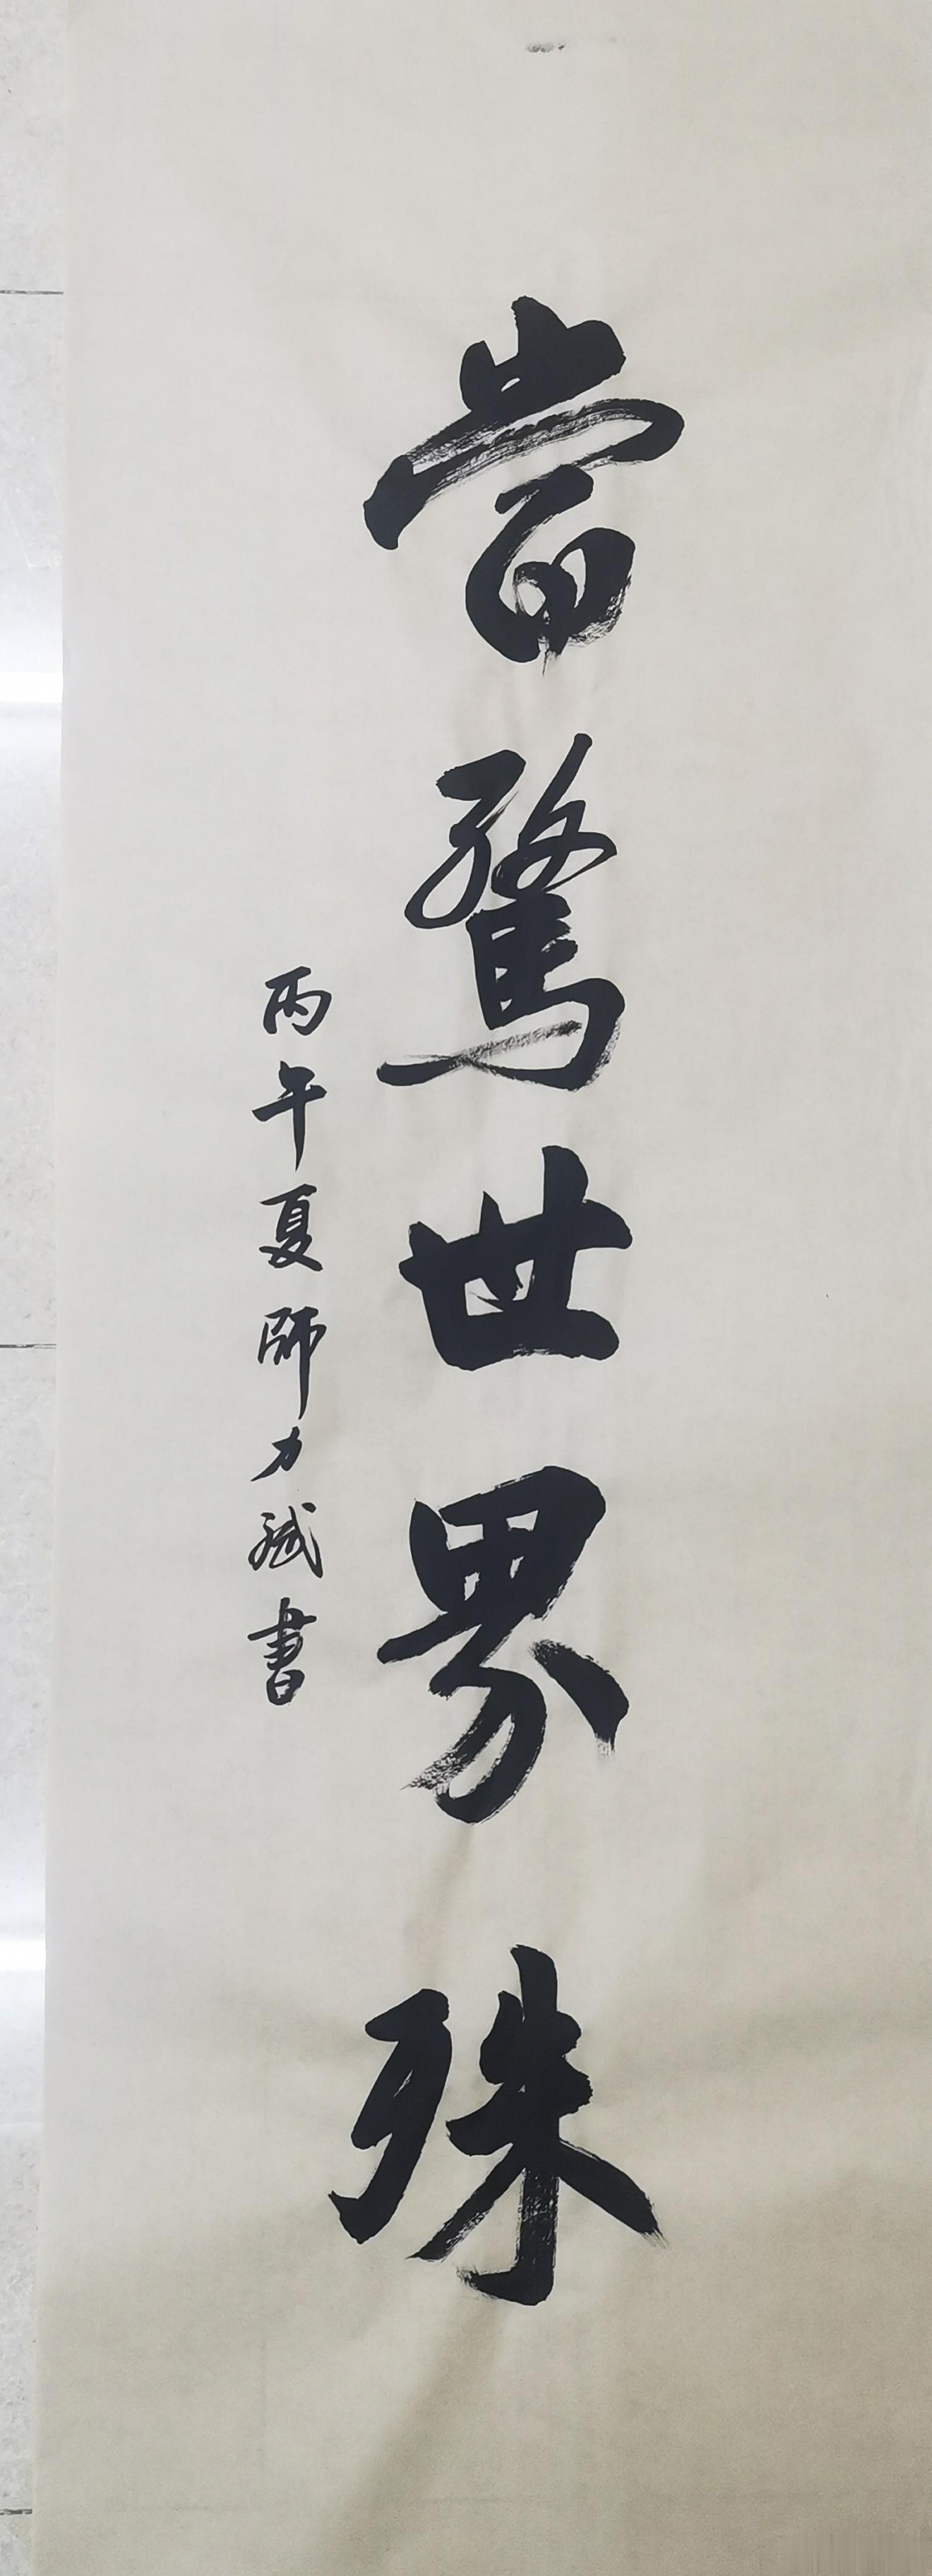 當驚世界殊
丙午夏師力斌書